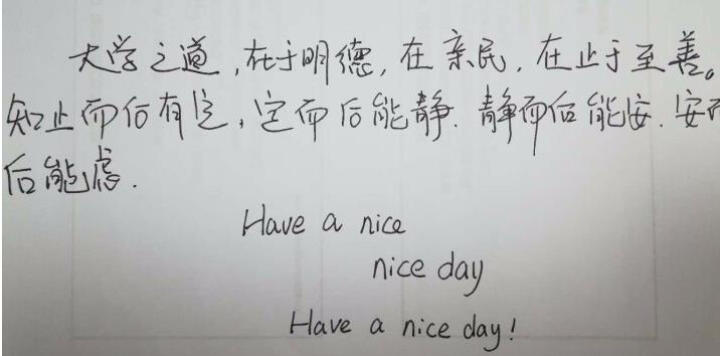 大学之道,在于明德,在亲民,在止于至善。
知止而后有定,定而后能静.静而后能安.安而
后能虑.
Have a nice
nice day
Have a nice day!